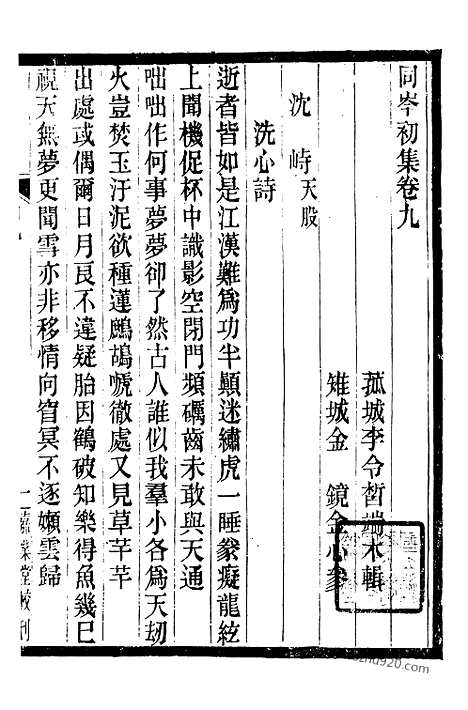 同岑初集卷九
菰城李令晳端木輯
雉城金　鏡金心參
沈　峙天殷
洗心詩
逝者皆如是江漢難爲功半顛迷繡虎一睡豢癡龍絃
上聞機促杯中識影空閉門頻礪齒未敢與天通
咄咄作何事夢夢卻了然古人誰似我羣小各爲天劫
火豈焚玉汙泥欲種蓮鷓鴣唬徹處又見草芊芊
出處或偶爾日月良不違疑胎因鶴破知樂得魚幾巳
視天無夢更聞雪亦非移情向窅冥不逐嬾雲歸
堂校刊